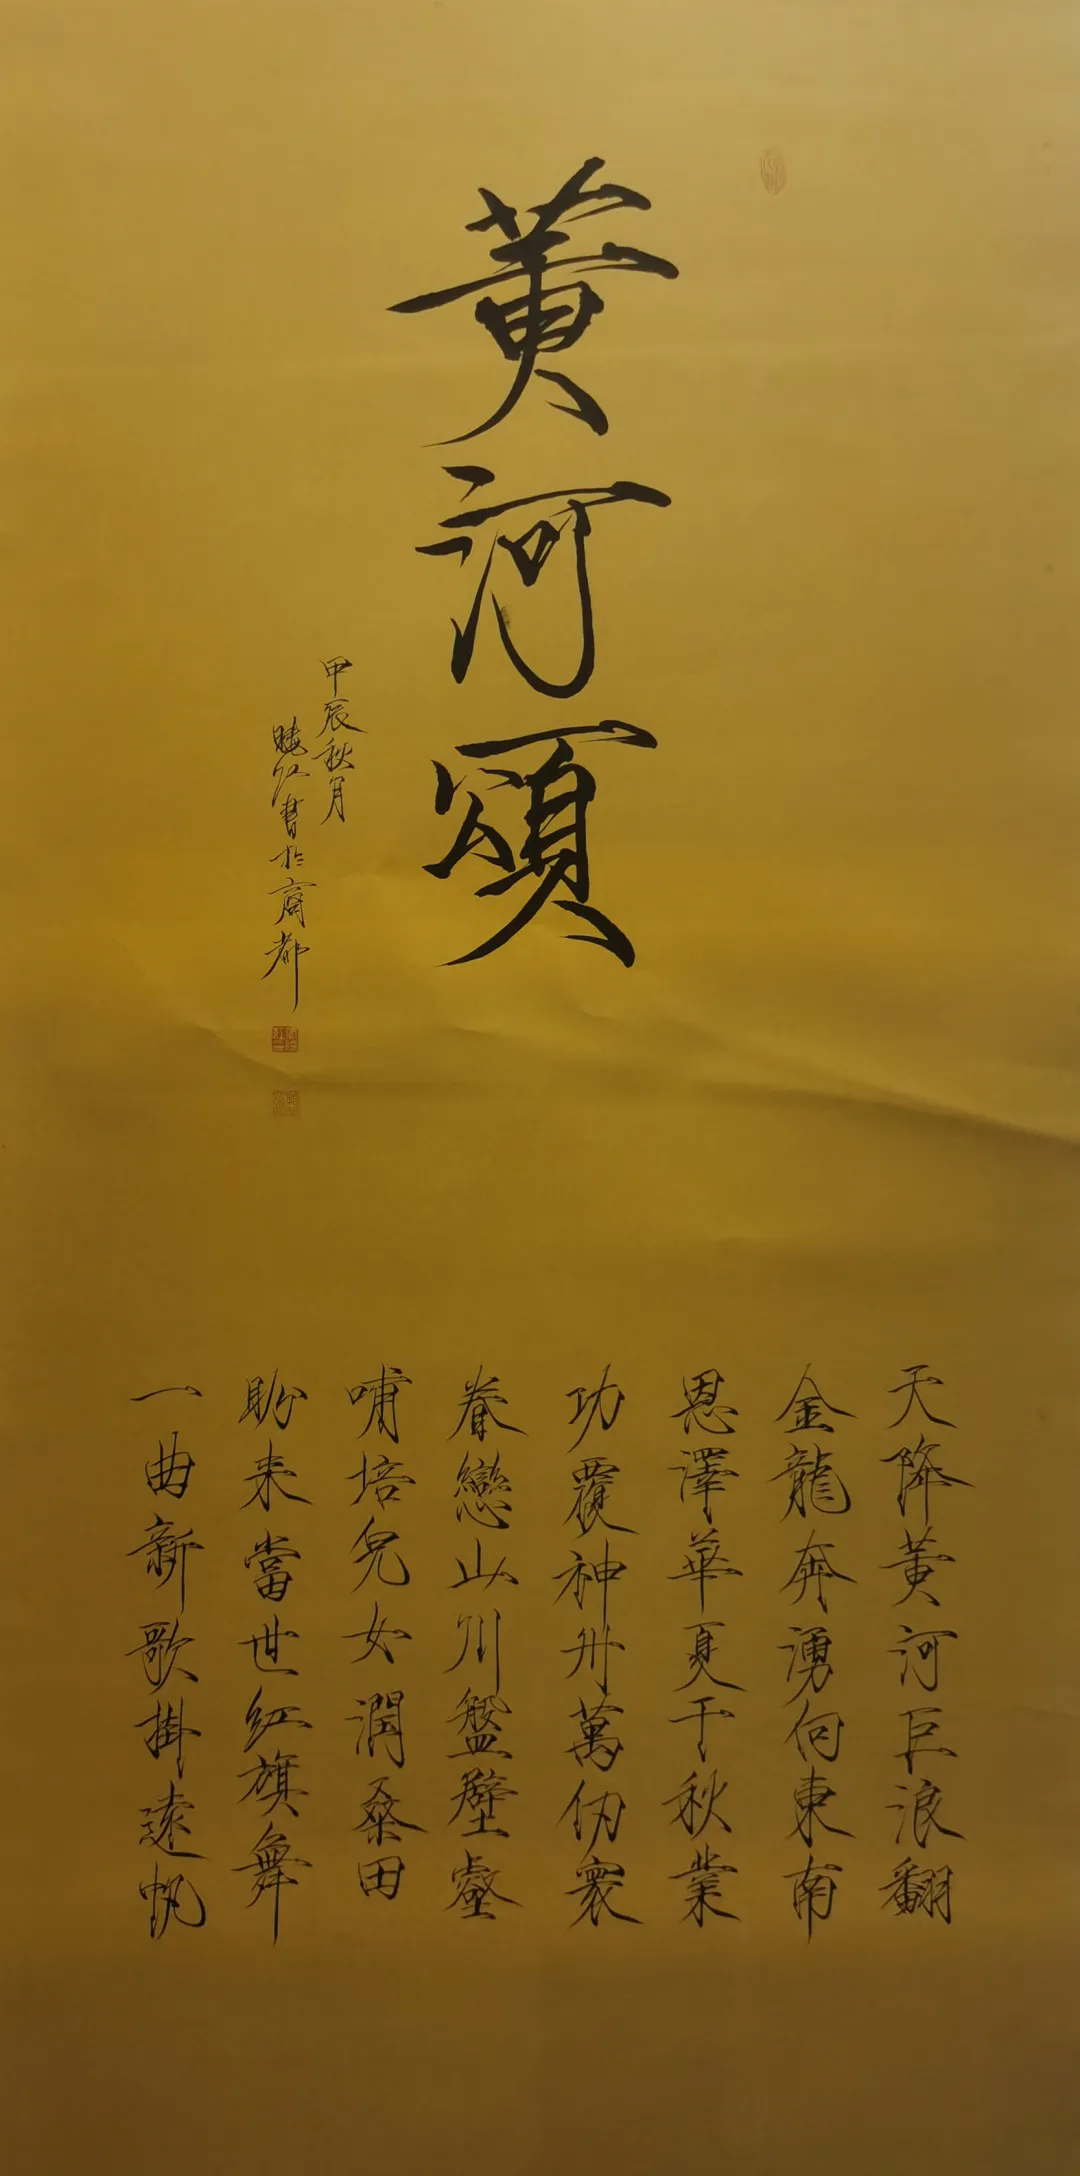 黄河頌
甲辰秋月
曉红書於商都
天降黄河巨浪翻
金龍奔湧向東南
恩澤華夏千秋業
功覆神州萬仞寰
眷戀山川盤壁壑
哺培兒女潤桑田
盼来當世红旗舞
一曲新歌掛遠帆